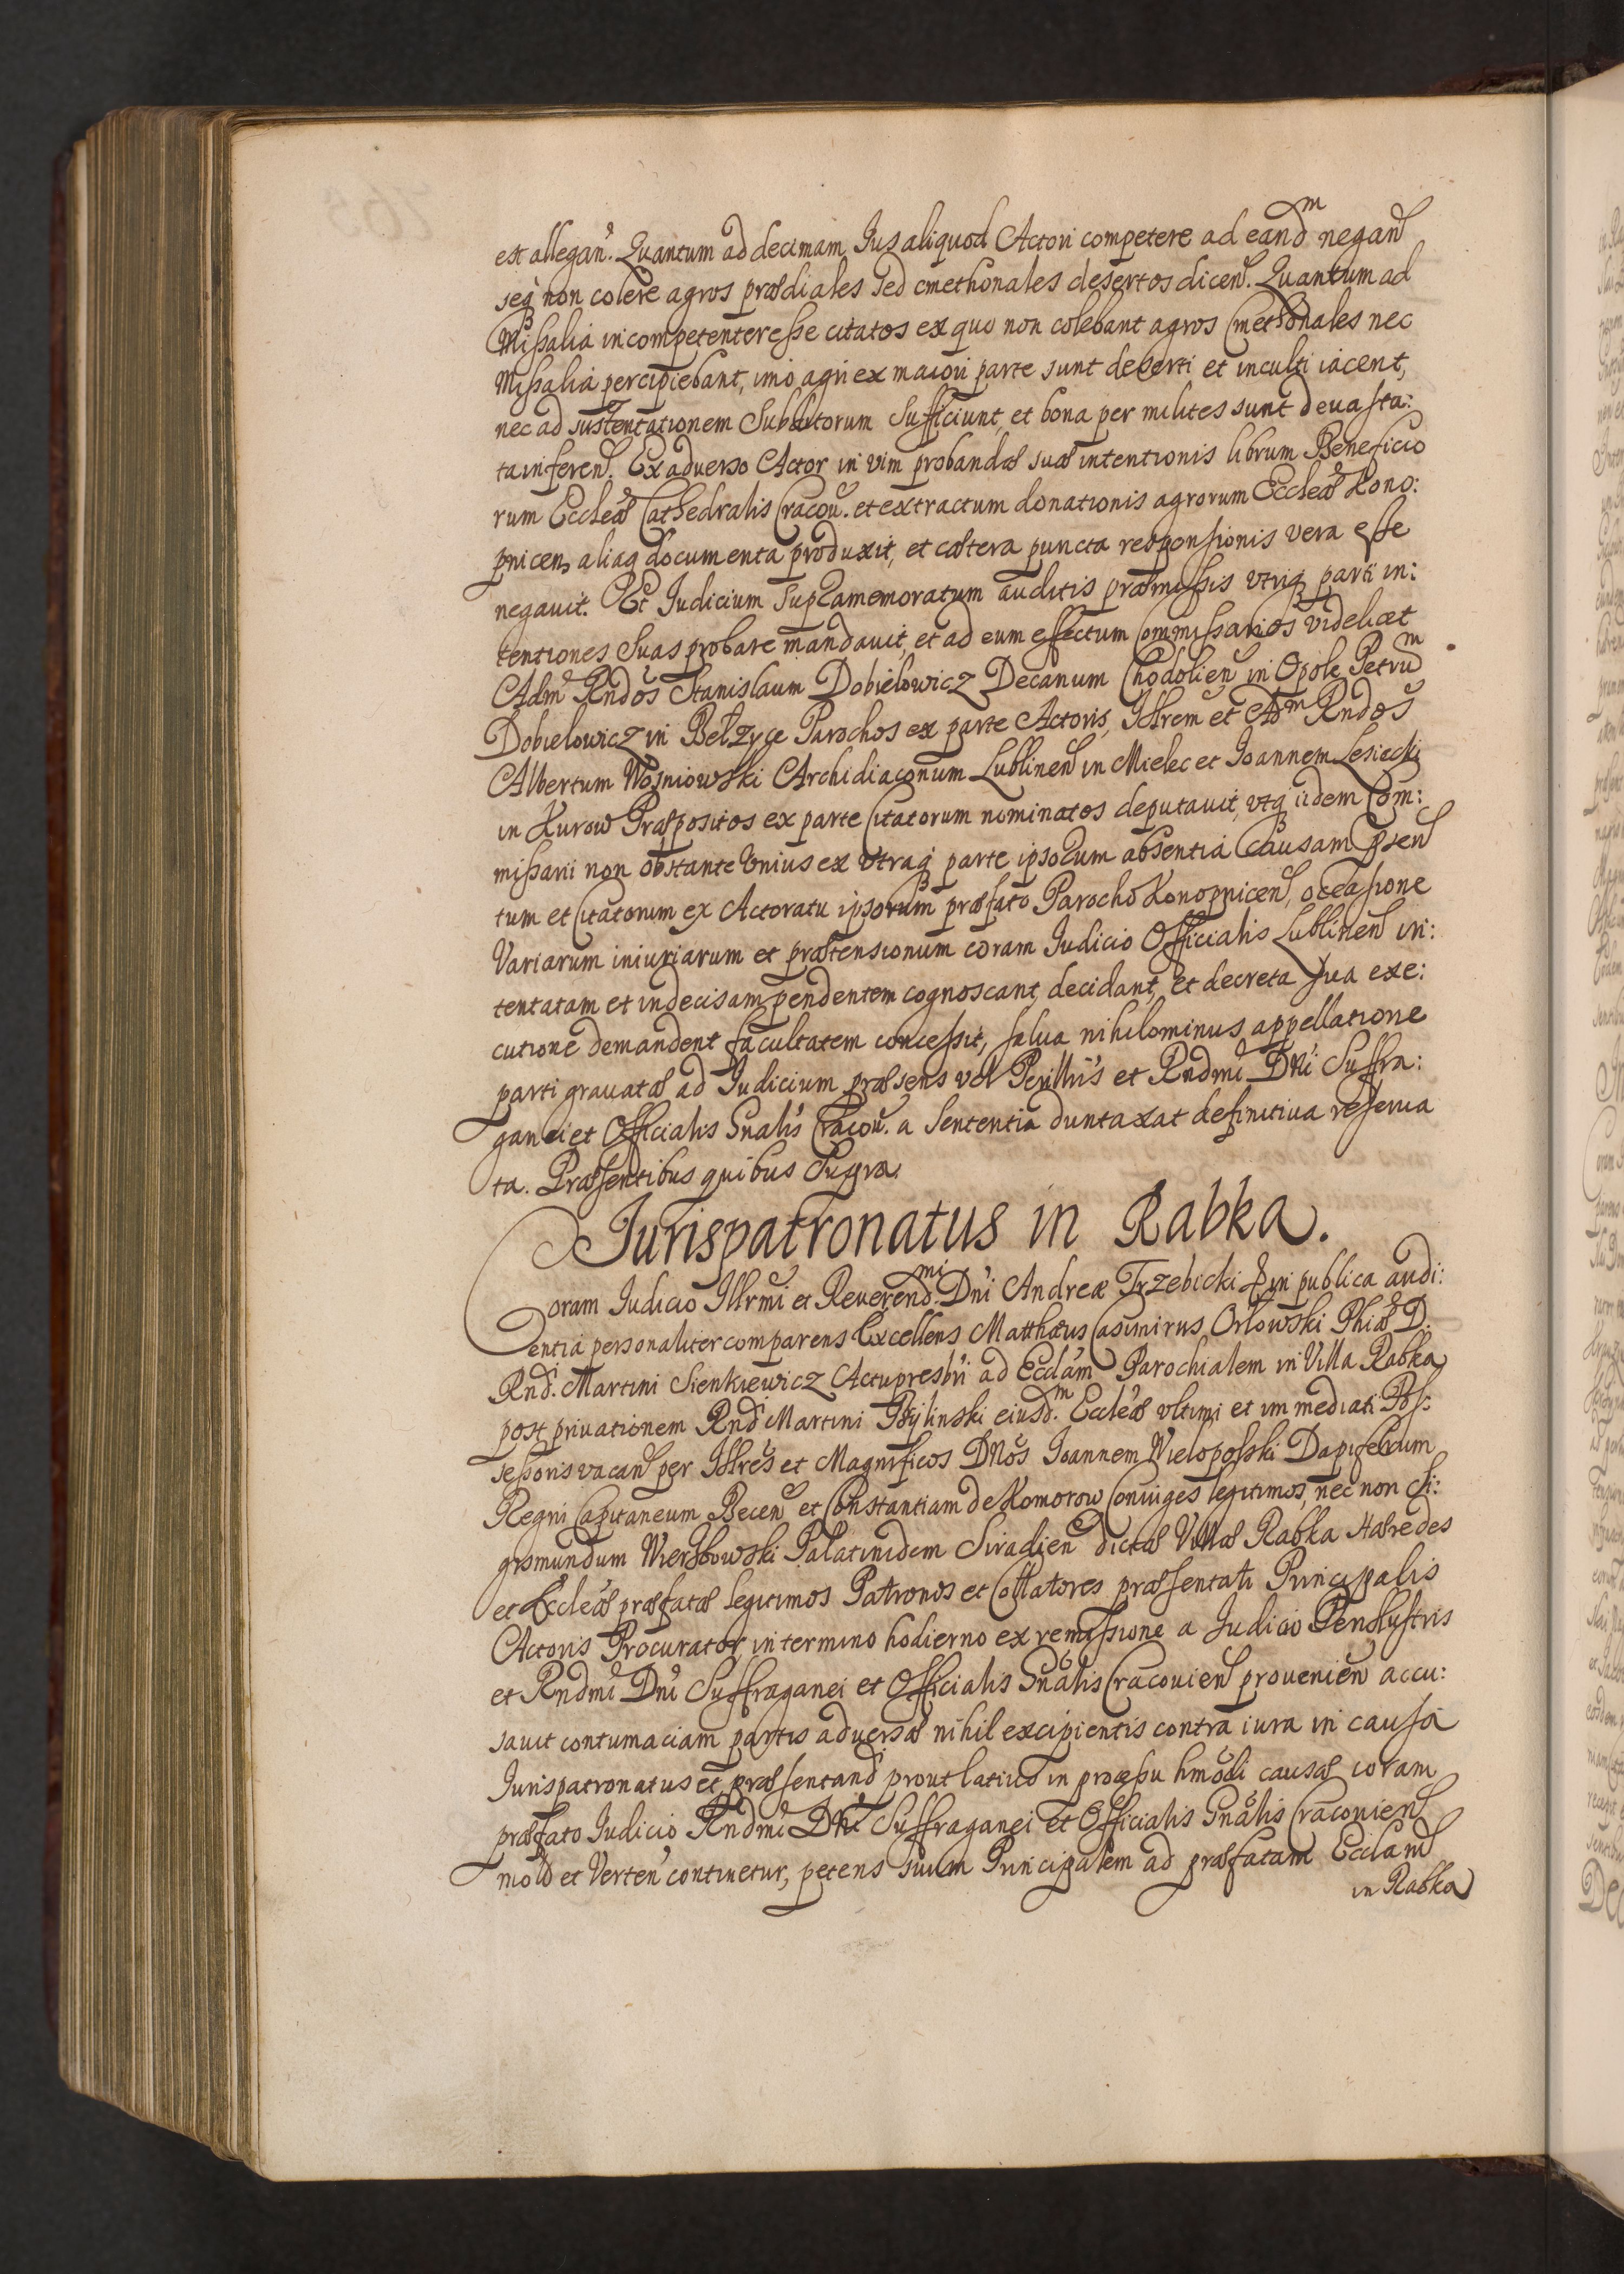 est allegan̄. Quantum ad decimam Jus aliquod Actori competere ad eand̄ᵐ negan̄
seq̨ non colere agros prædiales sed cmethonales desertos dicen̄. Quantum ad
Missalia incompetenter esse citatos ex quo non colebant agros Cmethonales nec
Missalia percipiebant, imo agri ex maiori parte sunt deserti et inculti iacent,
nec ad sustentationem Subditorum Sufficiunt et bona per milites sunt deuasta:
ta inferen̄. Ex aduerso Actor in vim probandæ suæ intentionis librum Beneficio
rum Eccleæ Cathedralis Cracou̅. et extractum donationis agrorum Eccleæ Kono:
pnicen, aliaq̨ documenta produxit, et cætera puncta responsionis vera esse
negauit. Et Judicium supramemoratum auditis præmissis vtriq̨ parti in:
tentiones suas probare mandauit, et ad eum effectum Commissarios videlicet
Adm̄ Rndos Stanislaum Dobielowicz Decanum Chodolien̄ in Opole Petrūᵐ
Dobielowicz in Bełzyce Parochos ex parte Actoris, Jllrem et Adᵐ Rndos
Albertum Wojniowski Archidiaconum Lublinen̄ in Mielec et Joannem Lesiecki
in Kurow Præpositos ex parte Citatorum nominatos deputauit, vtq̨ iidem Com:
missarii non obstante Vnius ex vtraq̨ parte ipsorum absentia Causam P̄sen̄
tum et Citatorum ex Actoratu ipsorum præfato Parocho Konopnicen̄, occasione
Variarum iniuriarum et prætensionum coram Judicio Officialis Lublinen̄ in:
tentatam et indecisam pendentem cognoscant, decidant, et decreta sua exe:
cutione demandent facultatem concessit, salua nihilominus appellatione
parti grauatæ ad Judicium præsens vel Perillris et Rndmi Dn̄i Suffra:
ganei et Officialis Gn̄alis Cracou̅. a Sententia duntaxat definitiua reserua
ta. Præsentibus quibus Supra.
Jurispatronatus in Rabka.
Coram Judicio Jllrmi et Reuerend.ᵐⁱ Dn̄i Andreæ Trzebicki & in publica audi:
entia personaliter comparens Excellens Matthæus Casimirus Orłowski Phiæ D.
Rnd̄. Martini Sienkiewicz Actu presbri ad Ecclām Parochialem in Villa Rabka
post priuationem Rnd̄ Martini eiusd.ᵐ Eccleæ vltimi et immediati Pos:
sessoris vacan̄ per Jllres et Magnificos Dn̄os Joannem Wielopolski Dapiferum
Regni Capitaneum Becen̄ et Constantiam de Komorow Coniuges legitimos, nec non Si:
gismundum Wierzbowski Palatinidem Siradien̄ dictæ Villæ Rabka Hæredes
et Eccleæ præfatæ legitimos Patronos et Collatores præsentati Principalis
Actoris Procurator, in termino hodierno ex remissione a Judicio Perillustris
et Rndmi Dn̄i Suffraganei et Officialis Gn̄alis Cracouien̄ prouenien̄ accu:
sauit contumaciam partis aduersæ nihil excipientis contra iura in causa
Jurispatronatus et præsentand̄ prout latius in processu hmōdi causæ coram
præfato Judicio Rndmi Dn̄i Suffraganei et Officialis Gn̄alis Cracouien̄
mot̄ et Verten̄ continetur, petens suum Principalem ad præfatam Ecclam̄
in Rabka